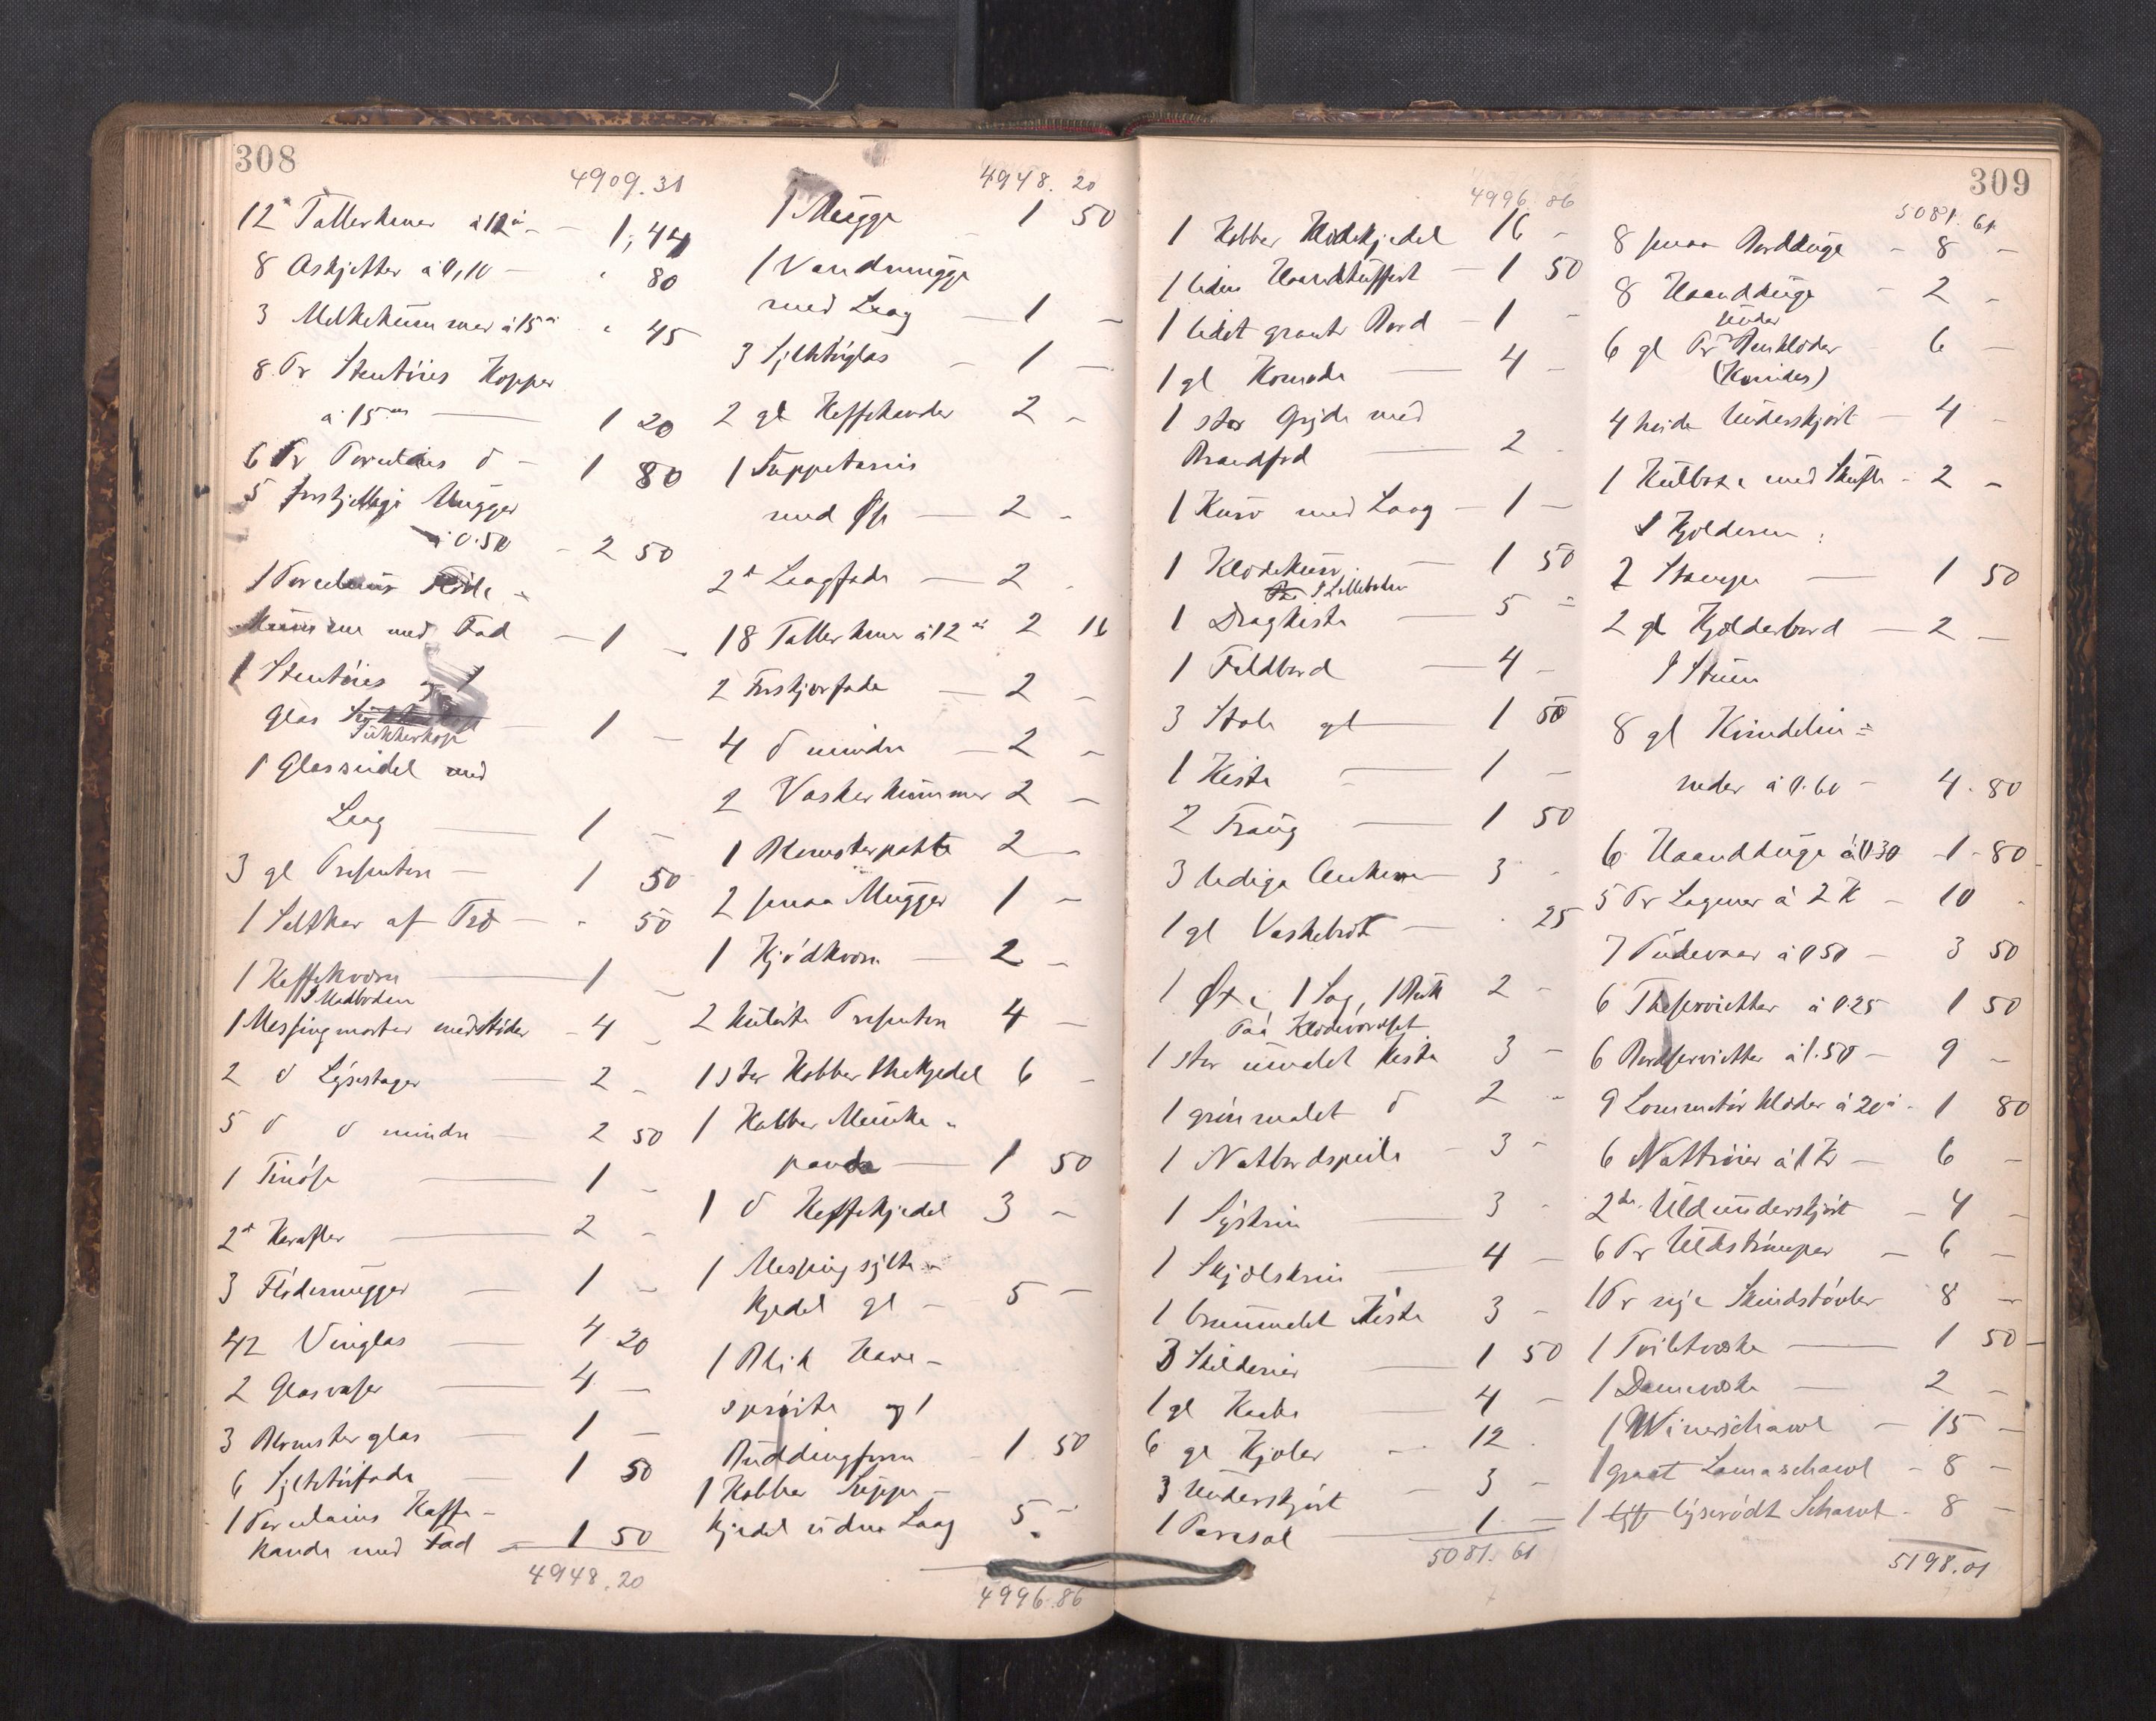 308
4909.31
12 Tallerkener à 12 ø - 1,44
8 Askjetter à 0,10 - " 80
3 Melkekummer à 15 ø " 45
8 Pr Stentöies Kopper
à 15 ø — 1 20
6 Pr Porcelæns d - 1 80
5 forskjellige Mugger
à 0.50 - 2 50
1 Porcelæns
Kumme med Fad - 1 -
1 Stentöies og 1
Glas
Sukkerkop - 1 -
1 Glasseidel med
Laag — 1 -
3 gl Presenten - 1 50
1 Saltkar af Træ - " 50
1 Kaffekværn — 1 -
I Madboden
1 Messingmorter med Stöder - 4 -
2 d Lysestager — 2 -
5 d d mindre - 2 50
1 Tinöse — 1 -
2 Karafler — 2 -
3 Flödemugger — 1 -
42 Vinglas — 4 20
2 Glasvaser — 4 -
3 Blomsterglas — 1 -
6 Syltetöifade — 1 50
1 Porcelains Kaffe-
kande med Fad - 1 50
4948.20
4948.20
1 Mugge - 1 50
1 Vandmugge
med Laag — 1 -
3 Syltetöiglas — 1 -
2 gl Kaffekander 2 -
1 Suppeterrin
med Øse — 2 -
2 Laagfade — 2 -
18 Tallerkener à 12 ø 2 16
2 Forskjærfade — 2 -
4 d mindre — 2 -
2 Vaskerkummer 2 -
1 Blomsterpotte 2 -
2 smaa Mugger 1 -
1 Kjödkværn — 2 -
2 Presenten 4 -
1 stor Kobber Thekjedel 6 -
1 Kobber Munke-
pande — 1 50
1 d Kaffekjedel 3 -
1 Messing sylte-
kjedel gl - 5 -
1 Blik Have-
spröite og 1
Puddingform - 1 50
1 Kobber Suppe-
kjedel uden Laag 5 -
4996.86
309
4996.86
1 Kobber Klædekjedel 16 -
1 liden Haandkuffert - 1 50
1 lidet graat Bord - 1 -
1 gl Komode — 4 -
1 stor Gryde med
Brandfod — 2 -
1 Kurv med Laag - 1 -
1 Klædekurv - 1 50
I Lilleboden
1 Dragkiste — 5 -
1 Foldbord — 4 -
3 Stole gl — 1 50
1 Kiste — 1 -
2 Traug — 1 50
3 ledige Ankere 3 -
1 gl Vaskebræt — " 25
1 Øxe, 1 Sag, 1 2 -
Paa Klædeværelset
1 stor umalet Kiste 3 -
1 grönmalet d 2 -
1 Natbordspeile - 3 -
1 Syskrin — 3 -
1 Skjolskrin — 4 -
1 brunmalet Kiste 3 -
3 Skilderier — 1 50
1 gl Kaabe — 4 -
6 gl Kjoler — 12 -
3 Underskjört - 3 -
1 Parasol — 1 -
5081.61
5081.61
8 smaa Bordduge - 8 -
8 Haandduge - 2 -
6 gl Pr Under Benklæder 6 -
(Kvindes)
4 hvide Underskjört - 4 -
1 Kulboxe med Skuffe - 2 -
I Kjælderen:
2 Stampe — 1 50
2 gl Kjælderbord - 2 -
I Stuen
8 gl Kvindelin=
neder à 0.60 - 4.80
6 Haandduge à 0.30 - 1.80
5 Pr Lagener à 2 K - 10 -
7 Pudevaar à 0.50 - 3 50
6 Theservietter à 0.25 1 50
6 Bordservietter à 1.50 - 9 -
9 Lommetörklæder à 20 ø - 1 80
6 Nattröier à 1 Kr - 6 -
2 Uldunderskjört - 4 -
6 Pr Uldströmper - 6 -
1 Pr nye Skindstövler 8 -
1 Toiletvæske — 1 50
1 Damevæske — 2 -
1 Winerschawl - 15 -
1 graat Lamaschawl - 8 -
1 lyserödt Schawl - 8 -
5198.01